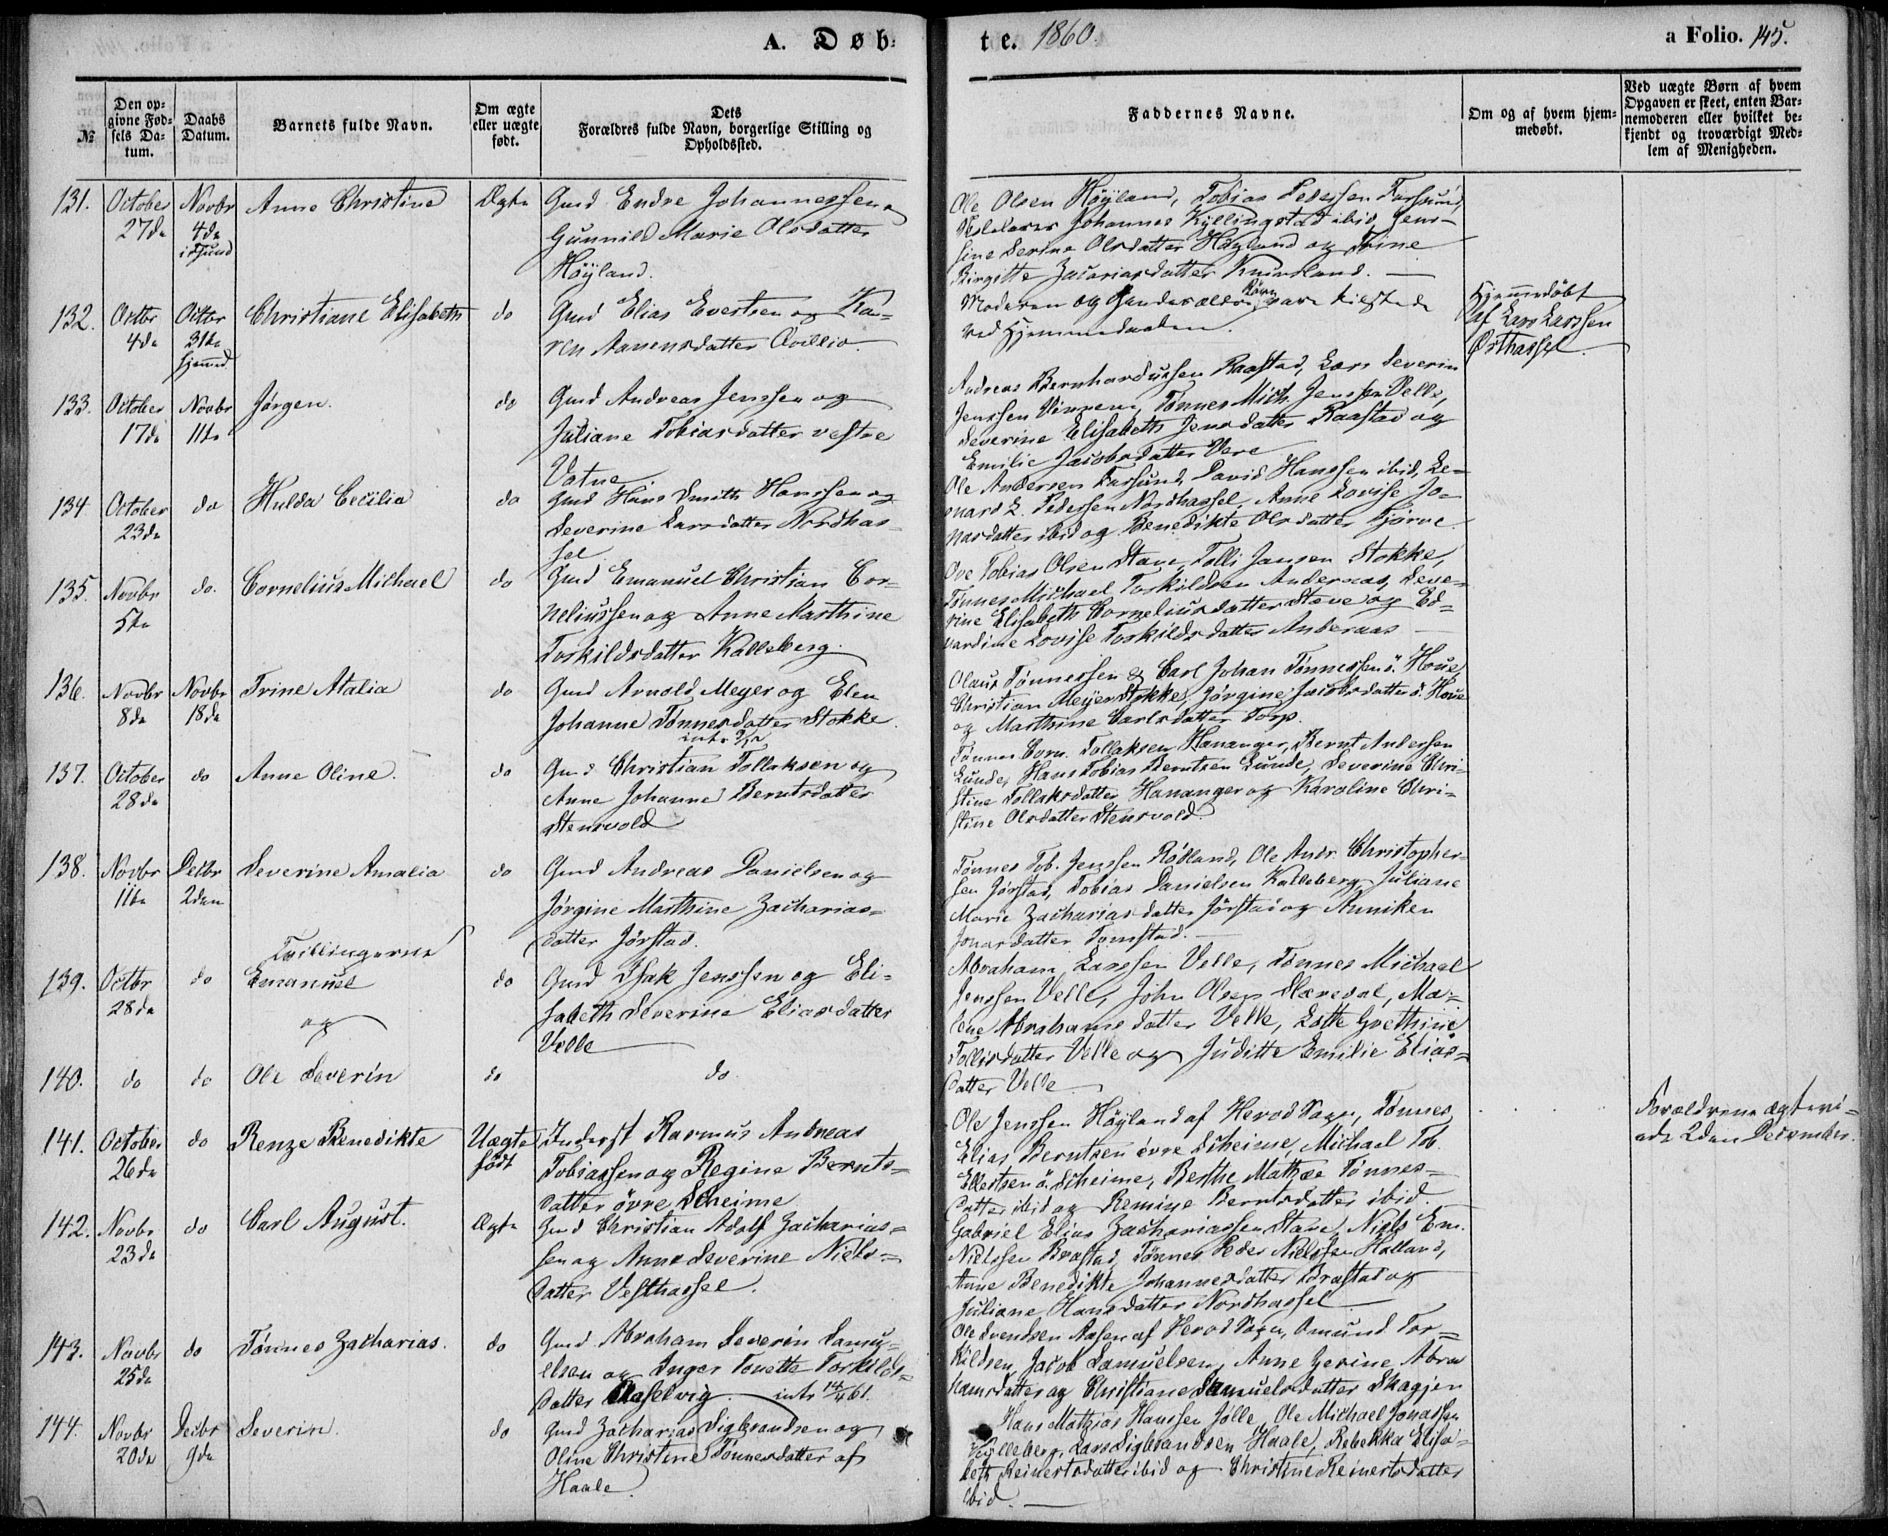 A. Døb-
te. 1860.
a Folio. 145.
№
Den op-
givne Fød-
sels Da-
tum.
Daabs
Datum.
Barnets fulde Navn.
Om ægte
eller uægte
født.
Dets
Forældres fulde Navn, borgerlige Stilling og
Opholdssted.
Faddernes Navne.
Om og af hvem hjem-
medøbt.
Ved uægte Børn af hvem
Opgaven er skeet, enten Bar-
nemoderen eller hvilket be-
kjendt og troværdigt Med-
lem af Menigheden.
131.
October
27de
Novbr
4de
i Fsund
Anne Christine
Ægte
Gmd Endre Johannessen
Gunnild Marie Olsdatter
Høyland.
Ole Olsen Høyland, Tobias Pedersen Farsund,
Skolelærer Johannes Kyllingstad ibid, Jens-
sine Serine Olsdatter Høyland og Trine
Birgitte Zacariasdatter Kuivland.
132.
Octbr
4de
Octbr
31te
hjemmd
Christiane Elisabeth
do
Gmd Elias Evertsen og Ka-
ren Aanensdatter Qvillio
Moderen og Hendes ældre Børn vare tilstede
ved Hjemmedaaben.
Hjemmedøbt
af Lars Larssen
Østhassel.
133.
October
17de
Novbr
11te
Jørgen.
do
Gmd Andreas Jenssen og
Juliane Tobiasdatter vestre
Vatne
Andreas Bernhardussen Raastad, Lars Severin
Jenssen Vinnem, Tønnes Mich. Jenssen Velle,
Severine Elisabeth Jensdatter Raastad og
Emilie Jacobsdatter Vere
134
October
23de
do
Hulda Cecilia
do
Gmd Hans Smith Hanssen og
Severine Larsdatter Nordhas-
sel
Ole Andersen Farsund, David Hanssen ibid, Le-
onard L. Pedersen Nordhassel, Anne Lovise Jo-
nasdatter ibid og Benedikte Olsdatter Tjørve.
135.
Novbr
5te
do.
Cornelius Michael
do
Gmd Emanuel Christian Cor-
neliussen og Anne Marthine
Torkildsdatter Kalleberg.
Ove Tobias Olsen Stave, Tolli Jansen Stokke,
Tønnes Michael Torkildsen Andernas, Seve-
rine Elisabeth Corneliusdatter Stave og Ed-
vardine Lovise Torkildsdatter Andernas
136.
Novbr
8de
Novbr
18de
Trine Atalia
do
Gmd Arnold Meyer og Elen
Johanne Tønnesdatter Stokke.
Olaus Tønnessen & Carl Johan Tønnessen ö. Houe,
Christian Meyer Stokke, Jørgine Jacobsdatter ö. Houe
og Marthine Carlsdatter Torp.
137.
October
28de
do
Anne Oline.
do
Gmd Christian Tollaksen og
Anne Johanne Berntsdatter
Stensvold
Tønnes Corn. Tollaksen Hananger, Bernt Andersen
Lunde, Hans Tobias Berntsen Lunde, Severine Chri-
stine Tollaksdatter Hananger og Karoline Chri-
stine Olsdatter Stensvold.
138.
Novbr
11te
Decbr
2den
Severine Amalia
do
Gmd Andreas Danielsen og
Jørgine Marthine Zacharias-
datter Jørstad.
Tønnes Tob. Jenssen Rødland, Ole Andr. Christopher-
sen Jørstad, Tobias Danielsen Kalleberg, Juliane
Marie Zachariasdatter Jørstad og Anniken
Jonasdatter Tomstad.
139.
Octbr
28de
do
Tvillingerne
Emanuel
og
do
Gmd Isak Jenssen og Eli-
sabeth Severine Eliasdatter
Velle
Abraham Larssen Velle, Tønnes Michael
Jenssen Velle, John Olsen Slævdal, Ma-
lene Abrahamsdatter Velle, Lotte Grethine
Tollisdatter Velle og Juditte Emilie Elias-
datter Velle
140.
do
do
Ole Severin
do
do.
141.
October
26de
do
Renze Benedikte
Uægte
født
Inderst Rasmus Andreas
Tobiassen og Regine Bernts-
datter øvre Skeime
Ole Jenssen Høyland af Herod Sogn, Tønnes
Elias Berntsen övre Skeime, Michael Tob.
Ellertsen ö. Skeime, Berthe Mathæa Tønnes-
datter ibid og Remine Berntsdatter ibid.
Forældrene ægtevi-
ede 2den December.
142.
Novbr
23de
do
Carl August.
Ægte
Gmd Christian Adolf Zacharias-
sen og Anne Severine Niels-
datter Vesthassel.
Gabriel Elias Zachariassen Stave, Niels Em.
Nielssen Brastad, Tønnes Peder Nielssen Halland,
Anne Benedikte Johannesdatter Brastad og
Juliane Hansdatter Nordhassel
143.
Novbr
25de
do
Tønnes Zacharias.
do
Gmd. Abraham Severin Samu-
elsen og Inger Tonette Torkilds-
datter
intr 14/4 61.
Ole Svendsen Aasen af Herod Sogn, Omund Tor-
kildsen, Jacob Samuelsen, Anne Gerine Abra-
hamsdatter og Christiane Samuelsdatter Skagjen
144.
Novbr
20de
Decbr
9de
Severin.
do
Gmd Zacharias Sigbrandsen og
Oline Christine Tønnesdatter af
Haale.
Hans Mathias Hanssen Jølle, Ole Michael Jonassen
Kylleberg, Lars Sigbrandsen Haale, Rebekka Elisa-
beth Reinertsdatter ibid og Christine Reinertsdatter
ibid.